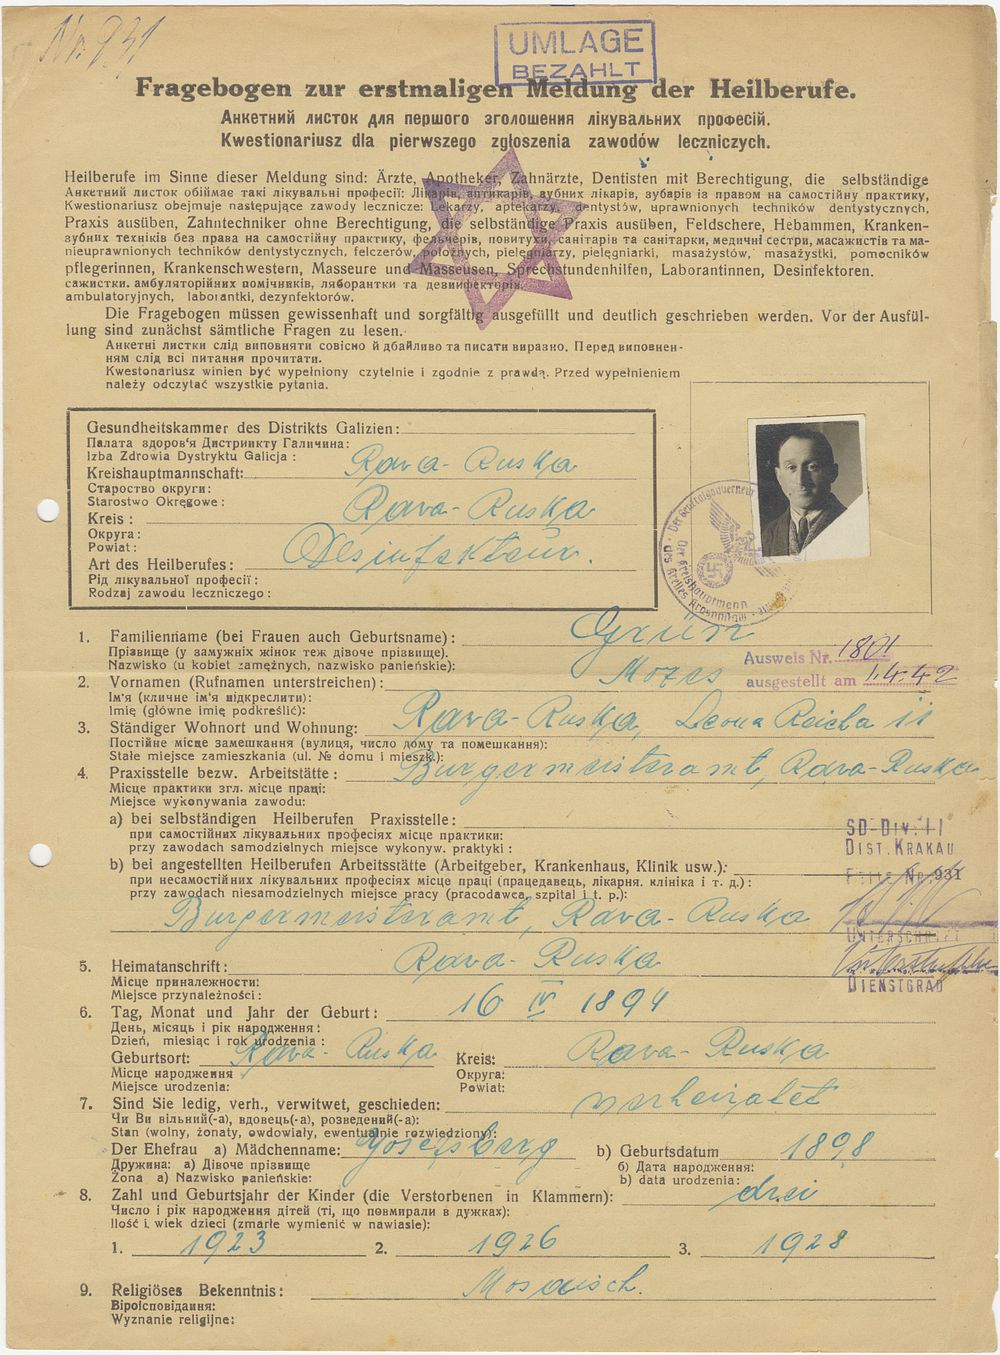 Nr. 931
UMLAGE
BEZAHLT
Fragebogen zur erstmaligen Meldung der Heilberufe.
Анкетний листок для першого зголошення лікувальних професій.
Kwestionariusz dla pierwszego zgłoszenia zawodów leczniczych.
Heilberufe im Sinne dieser Meldung sind: Ärzte, Apotheker, Zahnärzte, Dentisten mit Berechtigung, die selbständige
Анкетний листок обіймає такі лікувальні професії: Лікарів, аптикарів, зубних лікарів, зубарів із правом на самостійну практику,
Kwestionariusz obejmuje następujące zawody lecznicze: Lekarzy, aptekarzy, dentystów, uprawnionych techników dentystycznych,
Praxis ausüben, Zahntechniker ohne Berechtigung, die selbständige Praxis ausüben, Feldschere, Hebammen, Kranken-
зубних техніків без права на самостійну практику, фельчерів, повитухи, санітарів та санітарки, медичні сестри, масажистів та ма-
nieuprawnionych techników dentystycznych, felczerów, położnych, pielęgniarzy, pielęgniarki, masażystów, masażystki, pomocników
pflegerinnen, Krankenschwestern, Masseure und Masseusen, Sprechstundenhilfen, Laborantinnen, Desinfektoren.
сажистки. амбуляторійних помічників, ляборантки та дезинфекторів.
ambulatoryjnych, laborantki, dezynfektorów.
Die Fragebogen müssen gewissenhaft und sorgfältig ausgefüllt und deutlich geschrieben werden. Vor der Ausfül-
lung sind zunächst sämtliche Fragen zu lesen.
Анкетні листки слід виповняти совісно й дбайливо та писати виразно. Перед виповнен-
ням слід всі питання прочитати.
Kwestonariusz winien być wypełniony czytelnie i zgodnie z prawdą. Przed wypełnieniem
należy odczytać wszystkie pytania.
Gesundheitskammer des Distrikts Galizien:
Палата здоров'я Дистрикту Галичина:
Izba Zdrowia Dystryktu Galicja :
Kreishauptmannschaft: Rava-Ruska
Староство округи:
Starostwo Okręgowe :
Kreis : Rava-Ruska
Округа:
Powiat:
Art des Heilberufes: Desinfekteur.
Рід лікувальної професії :
Rodzaj zawodu leczniczego :
Der Kreishauptmann
1. Familienname (bei Frauen auch Geburtsname) : Grün
Прізвище (у замужніх жінок теж дівоче прізвище).
Nazwisko (u kobiet zamężnych, nazwisko panieńskie):
Ausweis Nr. 1801
ausgestellt am 1.4.42
2. Vornamen (Rufnamen unterstreichen) : Mozes
Ім'я (кличне ім'я підкреслити):
Imię (główne imię podkreślić):
3. Ständiger Wohnort und Wohnung: Rava-Ruska, Leona Reicha 11
Постійне місце замешкання (вулиця, число дому та помешкання):
Stałe miejsce zamieskania (ul. № domu i mieszk.):
4. Praxisstelle bezw. Arbeitstätte : Burgermeisteramt, Rava-Ruska
Місце практики згл. місце праці:
Miejsce wykonywania zawodu:
a) bei selbständigen Heilberufen Praxisstelle :
при самостійних лікувальних професіях місце практики:
przy zawodach samodzielnych miejsce wykonyw. praktyki :
SD-Div. II
DIST. KRAKAU
b) bei angestellten Heilberufen Arbeitsstätte (Arbeitgeber, Krankenhaus, Klinik usw.):
Nr. 931
при несамостійних лікувальних професіях місце праці (працедавець, лікарня. клініка і т. д.) :
przy zawodach niesamodzielnych miejsce pracy (pracodawca, szpital i t. p.):
Burgermeisteramt, Rava-Ruska
UNTERSCHRIFT
5. Heimatanschrift : Rava-Ruska
Місце приналежности:
Miejsce przynależności :
DIENSTGRAD
6. Tag, Monat und Jahr der Geburt : 16 IV 1894
День, місяць і рік народження :
Dzień, miesiąc i rok urodzenia :
Geburtsort: Rava-Ruska Kreis: Rava-Ruska
Місце народження Округа:
Miejsce urodzenia: Powiat:
7. Sind Sie ledig, verh., verwitwet, geschieden: verheiratet
Чи Ви вільний(-а), вдовець(-а), розведений(-а):
Stan (wolny, żonaty, owdowiały, ewentualnie rozwiedziony):
Der Ehefrau a) Mädchenname: Josefsberg b) Geburtsdatum 1898
Дружина: а) Дівоче прізвище б) Дата народження:
Żona a) Nazwisko panieńskie: b) data urodzenia:
8. Zahl und Geburtsjahr der Kinder (die Verstorbenen in Klammern): drei
Число і рік народження дітей (ті, що повмирали в дужках):
Ilość i wiek dzieci (zmarłe wymienić w nawiasie):
1. 1923 2. 1926 3. 1928
9. Religiöses Bekenntnis : Mosaisch.
Віроісповідання:
Wyznanie religijne: